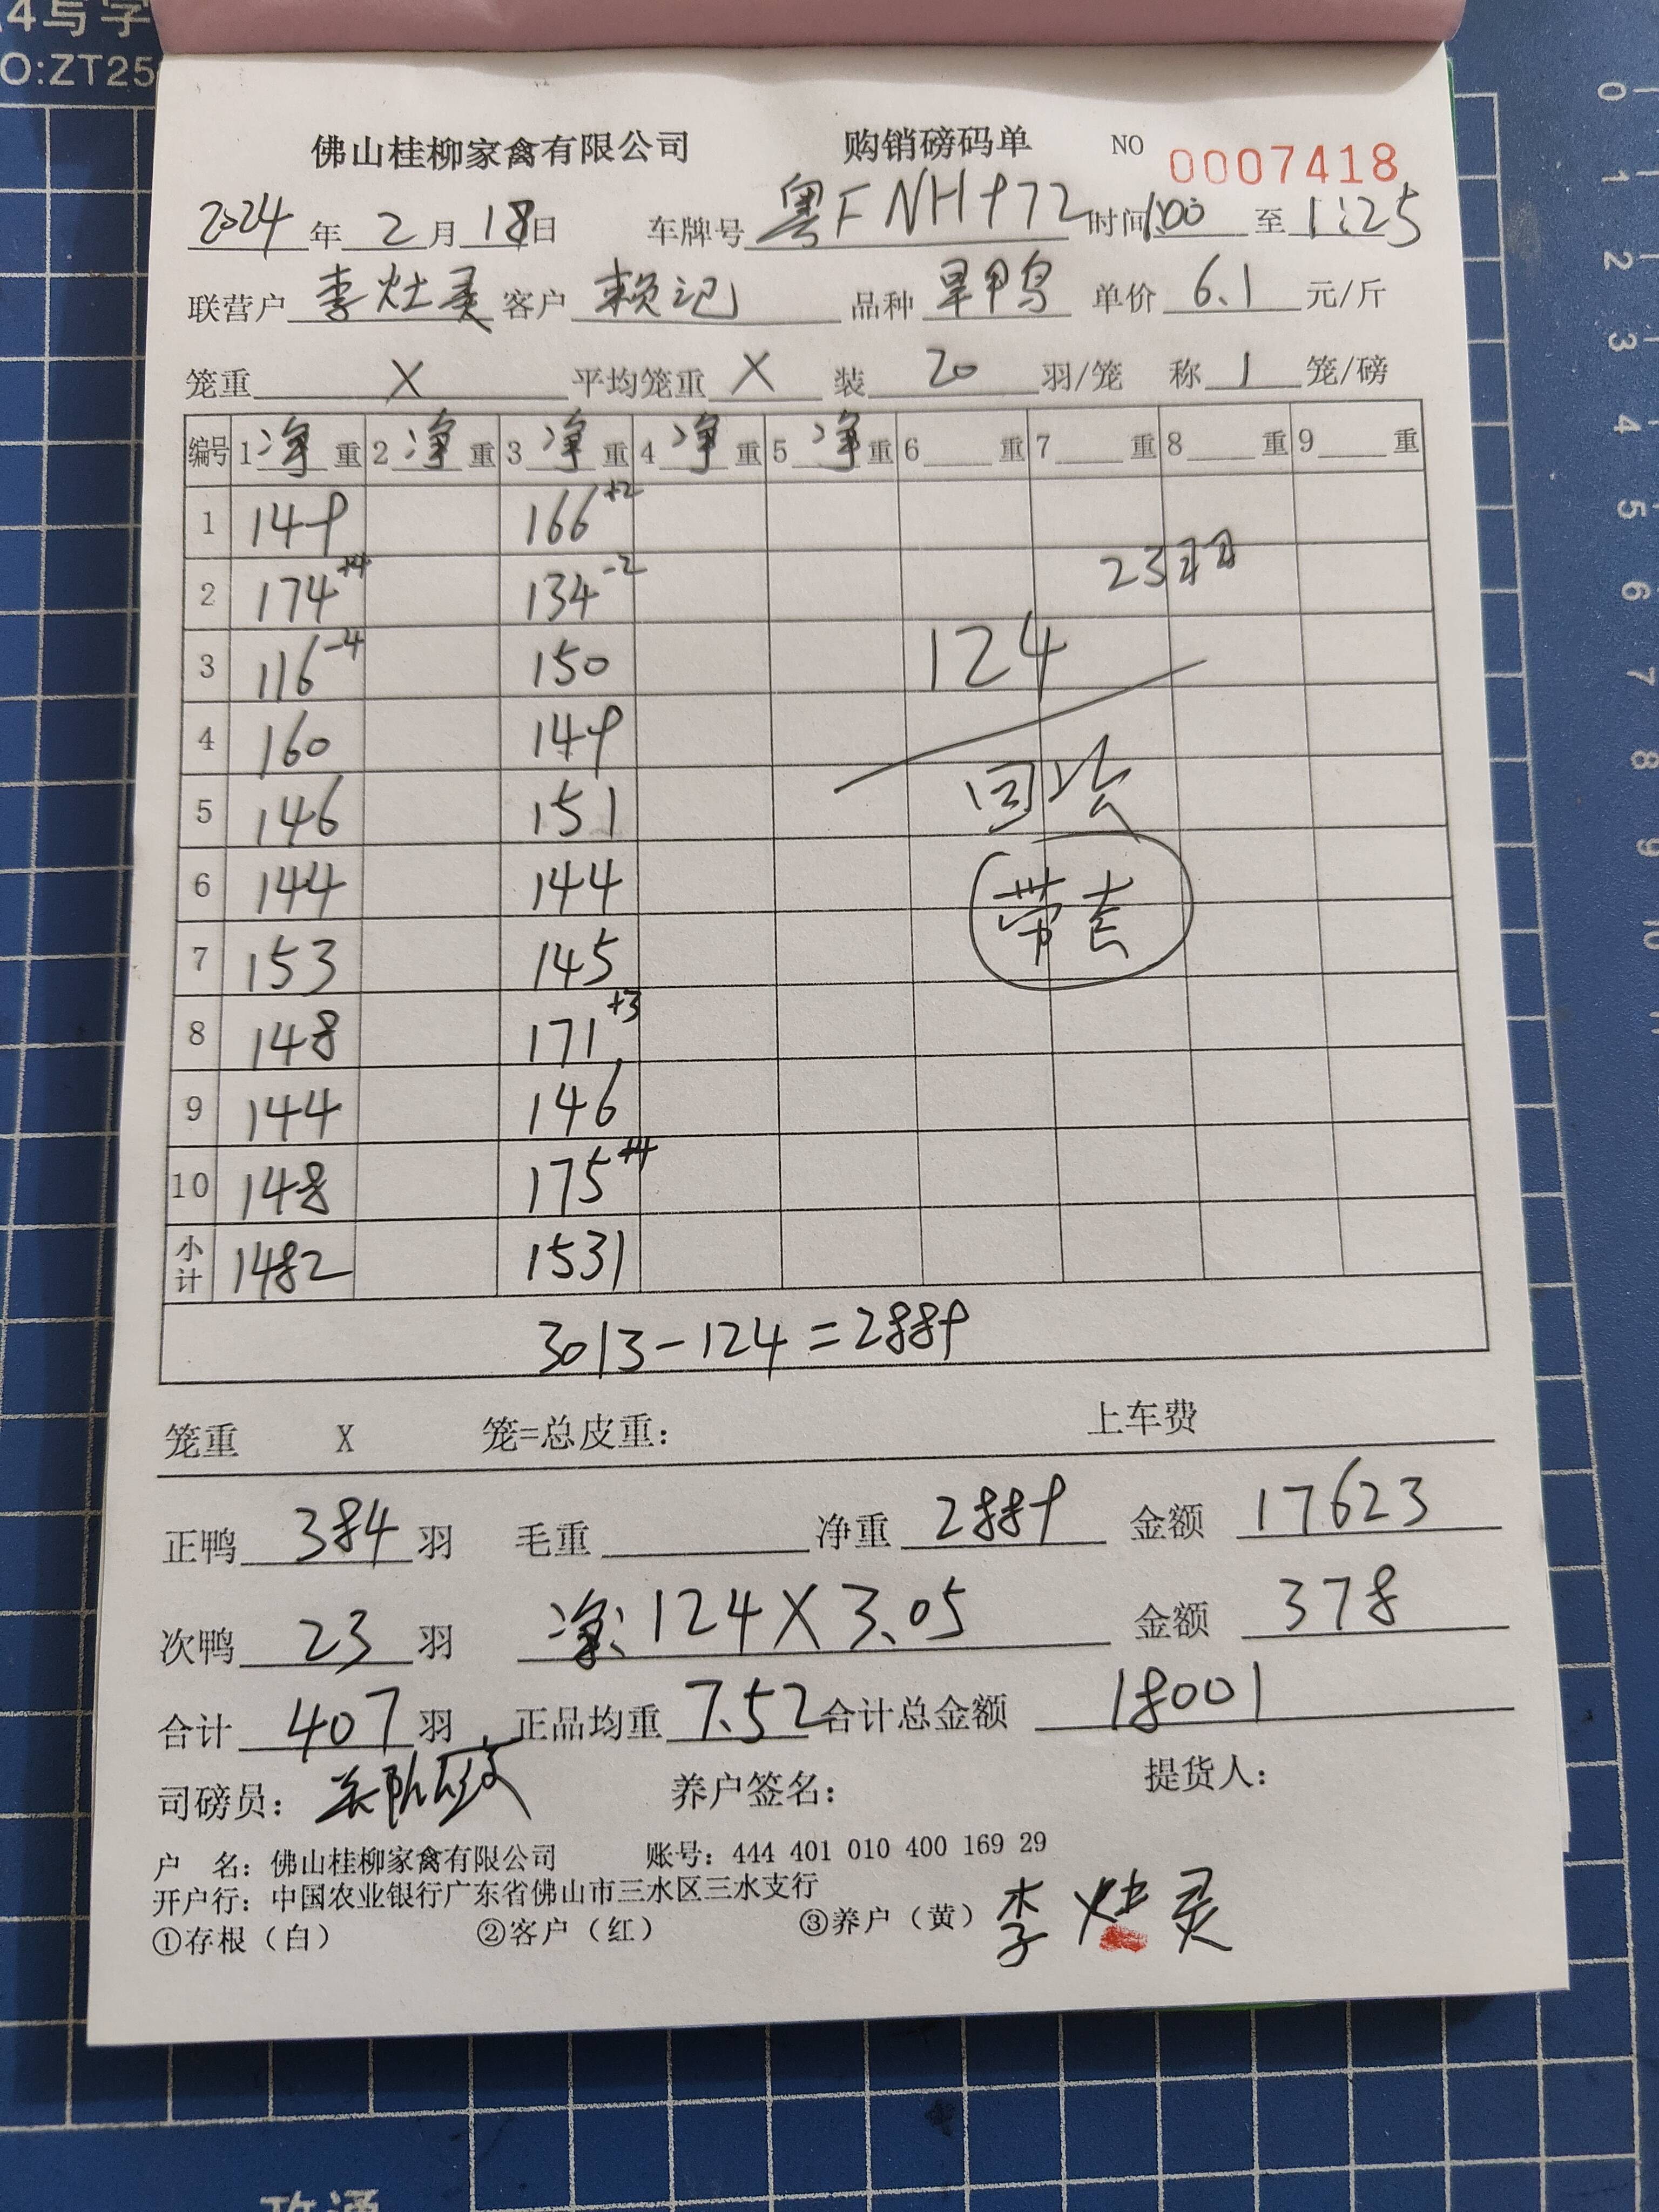 4写字
NO:ZT25
佛山桂柳家禽有限公司 购销磅码单 NO 0007418
2024 年 2 月 18 日 车牌号 粤F NH972 时间 1:00 至 1:25
联营户 李灶灵 客户 赖记 品种 旱鸭 单价 6.1 元/斤
笼重 X 平均笼重 X 装 20 羽/笼 称 1 笼/磅
编号 1 净 重 2 净 重 3 净 重 4 净 重 5 净 重 6 重 7 重 8 重 9 重
1 149 166+2
2 174+4 134-2 23羽
3 116-4 150 124
4 160 149
5 146 151
6 144 144 带
7 153 145
8 148 171+3
9 144 146
10 148 175+4
小计 1482 1531
3013-124=2889
笼重 X 笼=总皮重: 上车费
正鸭 384 羽 毛重 净重 2889 金额 17623
次鸭 23 羽 净: 124X3.05 金额 378
合计 407 羽 正品均重 7.52 合计总金额 18001
司磅员: 养户签名: 提货人:
户 名: 佛山桂柳家禽有限公司 账号: 444 401 010 400 169 29
开户行: 中国农业银行广东省佛山市三水区三水支行
①存根(白) ②客户(红) ③养户(黄) 李灶灵
0 1 2 3 4 5 6 7 8 9 10